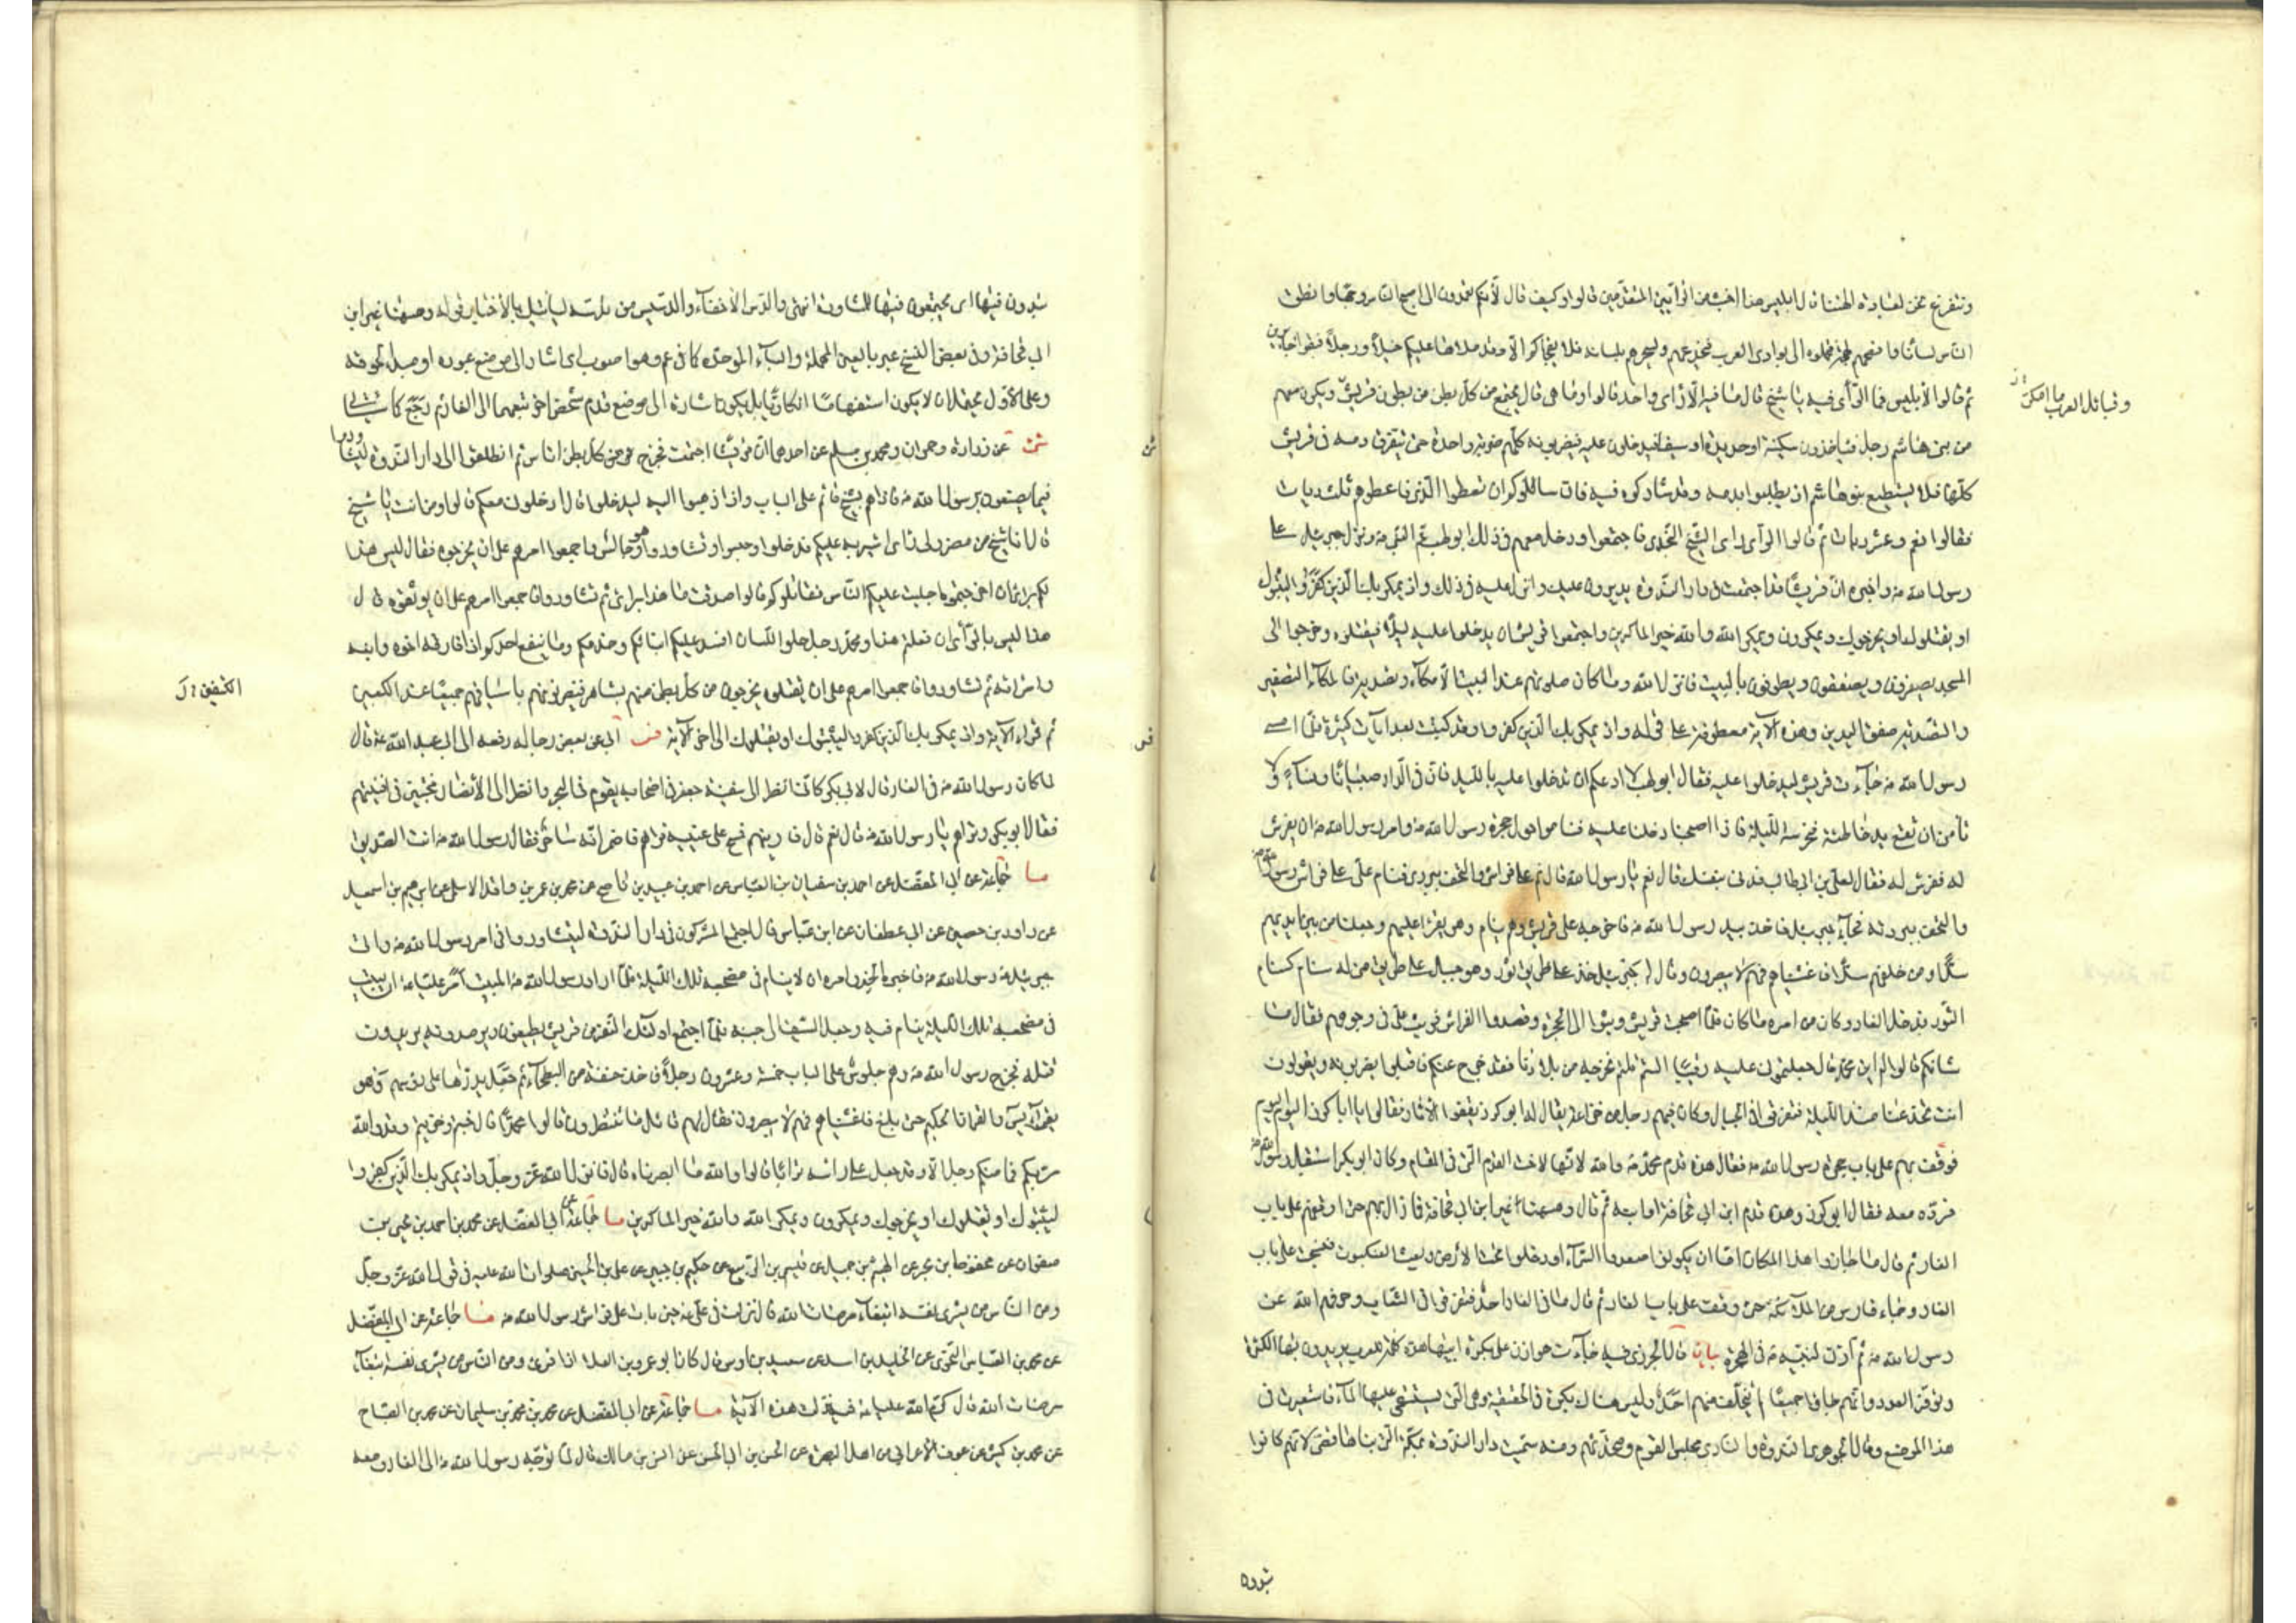 ونتفرغ نحن لعبادة الهتنا قال ابليس هذا اخبث من الرأيين المتقدمين قالوا وكيف قال لأنكم تعمدون الى اصبح الناس وجها وانطق
الناس لسانا وافصحهم لهجة فتحملوه الى بوادي العرب فيخدعهم ويسحرهم بلسانه فلا يفجأكم الا وقد ملاها عليكم خيلا ورجلا فبقوا حايرين
ثم قالوا لابليس فما الرأي فيه يا شيخ قال ما فيه الا رأي واحد قالوا وما هي قال يجتمع من كل بطن من بطون قريش ويكون معهم
وقبائل العرب ما امكن
من بني هاشم رجل فياخذون سكينة او حديدة او سيفا فيدخلون عليه فيضربونه كلهم ضربة واحدة حتى يتفرق دمه في قريش
كلها فلا يستطيع بنو هاشم ان يطلبوا بدمه وقد شاركوه فيه فان سالوكم ان تعطوا الدية فاعطوهم ثلث ديات
فقالوا نعم وعشر ديات ثم قالوا الرأي رأي الشيخ النجدي فاجتمعوا ودخل معهم في ذلك ابو لهب عم النبي ص ونزل جبرئيل على
رسول الله ص واخبره ان قريشا قد اجتمعت في دار الندوة يدبرون عليك وانزل عليه في ذلك واذ يمكر بك الذين كفروا ليثبتوك
او يقتلوك او يخرجوك ويمكرون ويمكر الله والله خير الماكرين واجتمعوا قريش ان يدخلوا عليه ليلا فيقتلوه وخرجوا الى
المسجد يصفرون ويصفقون ويطوفون بالبيت فانزل الله وما كان صلوتهم عند البيت الا مكاء وتصدية فالمكاء التصفير
والتصدية صفق اليدين وهذه الآية معطوفة على قوله واذ يمكر بك الذين كفروا وقد كتبت بعد ايات كثيرة فلما امسى
رسول الله ص جاءت قريش ليدخلوا عليه فقال ابو لهب لا ادعكم ان تدخلوا عليه بالليل فان في الدار صبيانا ونساء ولا
نأمن ان تقع يد خاطئة فنحرسه الليلة فاذا اصبحنا دخلنا عليه فناموا حول حجرة رسول الله ص وامر رسول الله ص ان يفرش
له ففرش له فقال لعلي بن ابي طالب افدني بنفسك قال نعم يا رسول الله قال نم على فراشي والتحف ببردي فنام علي على فراش رسول الله ص
والتحف ببردته فجاء جبرئيل فاخذ بيد رسول الله ص فاخرجه على قريش وهم نيام وهو يقرأ عليهم وجعلنا من بين ايديهم
سدا ومن خلفهم سدا فاغشيناهم فهم لا يبصرون وقال له جبرئيل خذ على طريق ثور وهو جبل على طريق منى له سنام كسنام
الثور فدخل الغار وكان من امره ما كان فلما اصبحت قريش وثبوا الى الحجرة وقصدوا الفراش فوثب علي في وجوههم فقال ما
شانكم قالوا له اين محمد قال جعلتموني عليه رقيبا الستم قلتم نخرجه من بلادنا فقد خرج عنكم فاقبلوا يضربونه ويقولون
انت تخدعنا منذ الليلة فتفرقوا في الجبال وكان فيهم رجل من خزاعة يقال له ابو كرز يقفوا الاثار فقالوا يا ابا كرز اليوم اليوم
فوقف بهم على باب حجرة رسول الله ص فقال هذه قدم محمد ص والله لانها لاخت القدم التي في المقام وكان ابو بكر استقبل رسول الله ص
فرده معه فقال ابو كرز وهذه قدم ابن ابي قحافة او ابيه ثم قال وههنا غير ابن ابي قحافة فما زال بهم حتى اوقفهم على باب
الغار ثم قال ما جازوا هذا المكان اما ان يكونوا صعدوا السماء او دخلوا تحت الارض وبعث الله العنكبوت فنسجت على باب
الغار وجاء فارس من الملائكة حتى وقف على باب الغار ثم قال ما في الغار احد فتفرقوا في الشعاب وصرفهم الله عن
رسول الله ص ثم اذن لنبيه ص في الهجرة بيان قال الجزري فيه جاءت هوازن على بكرة ابيها هذه كلمة للعرب يريدون بها الكثرة
وتوفر العدد وانهم جاؤا جميعا لم يتخلف منهم احد وليس هناك بكرة في الحقيقة وهي التي يستسقى عليها الماء فاستعيرت في
هذا الموضع وقال الجوهري الندوة والنادي مجلس القوم ومتحدثهم ومنه سميت دار الندوة بمكة التي بناها قصي لانهم كانوا
يندون
يندون فيها اي يجتمعون فيها للمشاورة انتهى والدس الاخفاء والدسيس من تدسه لياتيك بالأخبار قوله وههنا غير ابن
ابي قحافة وفي بعض النسخ عبر بالعين المهملة والباء الموحدة كما في عم وهو اصوب اي اشار الى موضع عبوره او محل لحوقه
وعلى الأول يحتمل ان لا يكون استفهاما انكاريا بل يكون اشارة الى موضع قدم شخص اخر تبعهما الى الغار ثم رجع كما سيأتي
شى عن زرارة وحمران ومحمد بن مسلم عن احدهما ان قريشا اجتمعت فخرج من كل بطن اناس ثم انطلقوا الى دار الندوة ليشاوروا
فيما يصنعون برسول الله ص فاذا هم بشيخ قائم على الباب واذا ذهبوا اليه ليدخلوا قال ادخلوني معكم قالوا ومن انت يا شيخ
قال انا شيخ من مضر ولي رأي اشير به عليكم فدخلوا وجلسوا وتشاوروا وهو جالس واجمعوا امرهم على ان يخرجوه فقال ليس هذا
لكم برأي ان اخرجتموه اجلب عليكم الناس فقاتلوكم قالوا صدقت ما هذا برأي ثم تشاوروا فاجمعوا امرهم على ان يوثقوه قال
هذا ليس بالرأي ان فعلتم هذا ومحمد رجل حلو اللسان افسد عليكم ابنائكم وخدمكم وما ينفع احدكم اذا فارقه اخوه وابنه
وامرأته ثم تشاوروا فاجمعوا امرهم على ان يقتلوه يخرجون من كل بطن منهم بشاهر فيضربونهم باسيافهم جميعا عند الكعبين
الكتفين
ثم قراء الآية واذ يمكر بك الذين كفروا ليثبتوك او يقتلوك الى اخر الآية فس ابي عن بعض رجاله رفعه الى ابي عبد الله ع قال
لما كان رسول الله ص في الغار قال لابي بكر كأننا انظر الى سفينة جعفر في اصحابه يقوم في البحر وانظر الى الأنصار محتبين في افنيتهم
فقال ابو بكر وتراهم يا رسول الله ص قال نعم قال فارنيهم فمسح على عينيه فراهم فاضمر انه ساحر فقال رسول الله ص انت الصديق
ما جماعة عن ابي المفضل عن احمد بن سفيان بن العباس عن احمد بن عبيد بن ناصح عن محمد بن عمر بن واقد الاسلمي عن ابرهيم بن اسمعيل
عن داود بن حصين عن ابي غطفان عن ابن عباس قال اجتمع المشركون في دار الندوة ليتشاوروا في امر رسول الله ص واتى
جبرئيل ع رسول الله ص فاخبره الخبر وامره ان لا ينام في مضجعه تلك الليلة فلما اراد رسول الله ص المبيت أمر عليا ع ان يبيت
في مضجعه تلك الليلة ينام فيه وجعل السيف الى جنبه فلما اجتمع اولئك النفر من قريش يطيفون ويرصدونه يريدون
قتله فخرج رسول الله ص وهم جلوس على الباب خمسة وعشرون رجلا فاخذ حفنة من البطحاء ثم جعل يذرها على رؤسهم وهو
يقرأ يس والقران الحكيم حتى بلغ فاغشيناهم فهم لا يبصرون فقال لهم قائل ما تنتظرون قالوا محمدا قال خبتم وخسرتم وقد والله
مر بكم فما منكم رجل الا وقد جعل على راسه ترابا قالوا والله ما ابصرناه قال فانزل الله عز وجل واذ يمكر بك الذين كفروا
ليثبتوك او يقتلوك او يخرجوك ويمكرون ويمكر الله والله خير الماكرين ما جماعة عن ابي المفضل عن محمد بن احمد بن يحيى بن
صفوان عن محفوظ بن بحر عن الهيثم بن جميل عن قيس بن الربيع عن حكيم بن جبير عن علي بن الحسين صلوات الله عليه في قول الله عز وجل
ومن الناس من يشري نفسه ابتغاء مرضات الله قال نزلت في علي ع حين بات على فراش رسول الله ص ما جماعة عن ابي المفضل
عن محمد بن العباس النحوي عن الخليل بن اسد عن سعيد بن اوس قال كان ابو عمرو بن العلا اذا قرئ ومن الناس من يشري نفسه ابتغاء
مرضات الله قال كرم الله عليا ع فيه نزلت هذه الآية ما جماعة عن ابي المفضل عن محمد بن محمد بن سليمان عن محمد بن الصباح
عن محمد بن كثير عن عوف الأعرابي من اهل البصرة عن الحسن بن ابي الحسن عن انس بن مالك قال لما توجه رسول الله ص الى الغار ومعه